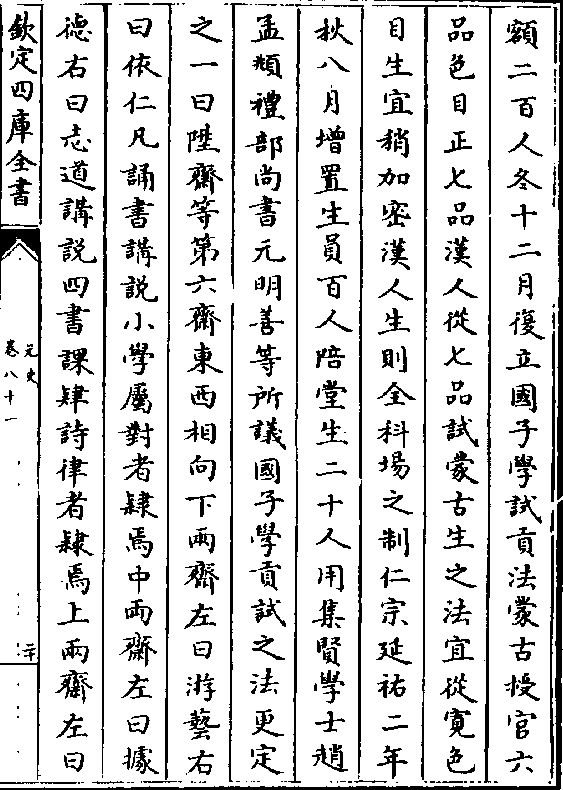 額二百人冬十二月復立國子學試貢法蒙古授官六
品色目正七品漢人從七品試蒙古生之法宜從寛色
目生宜稍加密漢人生則全科場之制仁宗延祐二年
秋八月增置生員百人陪堂生二十人用集賢學士趙
孟頫禮部尚書元明善等所議國子學貢試之法更定
之一曰陞齋等第六齋東西相向下兩齋左曰游藝右
曰依仁凡誦書講説小學屬對者隸焉中兩齋左曰據
德右曰志道講説四書課肄詩律者隸焉上兩齋左曰
欽定四庫全書
元史
卷八十一
二十